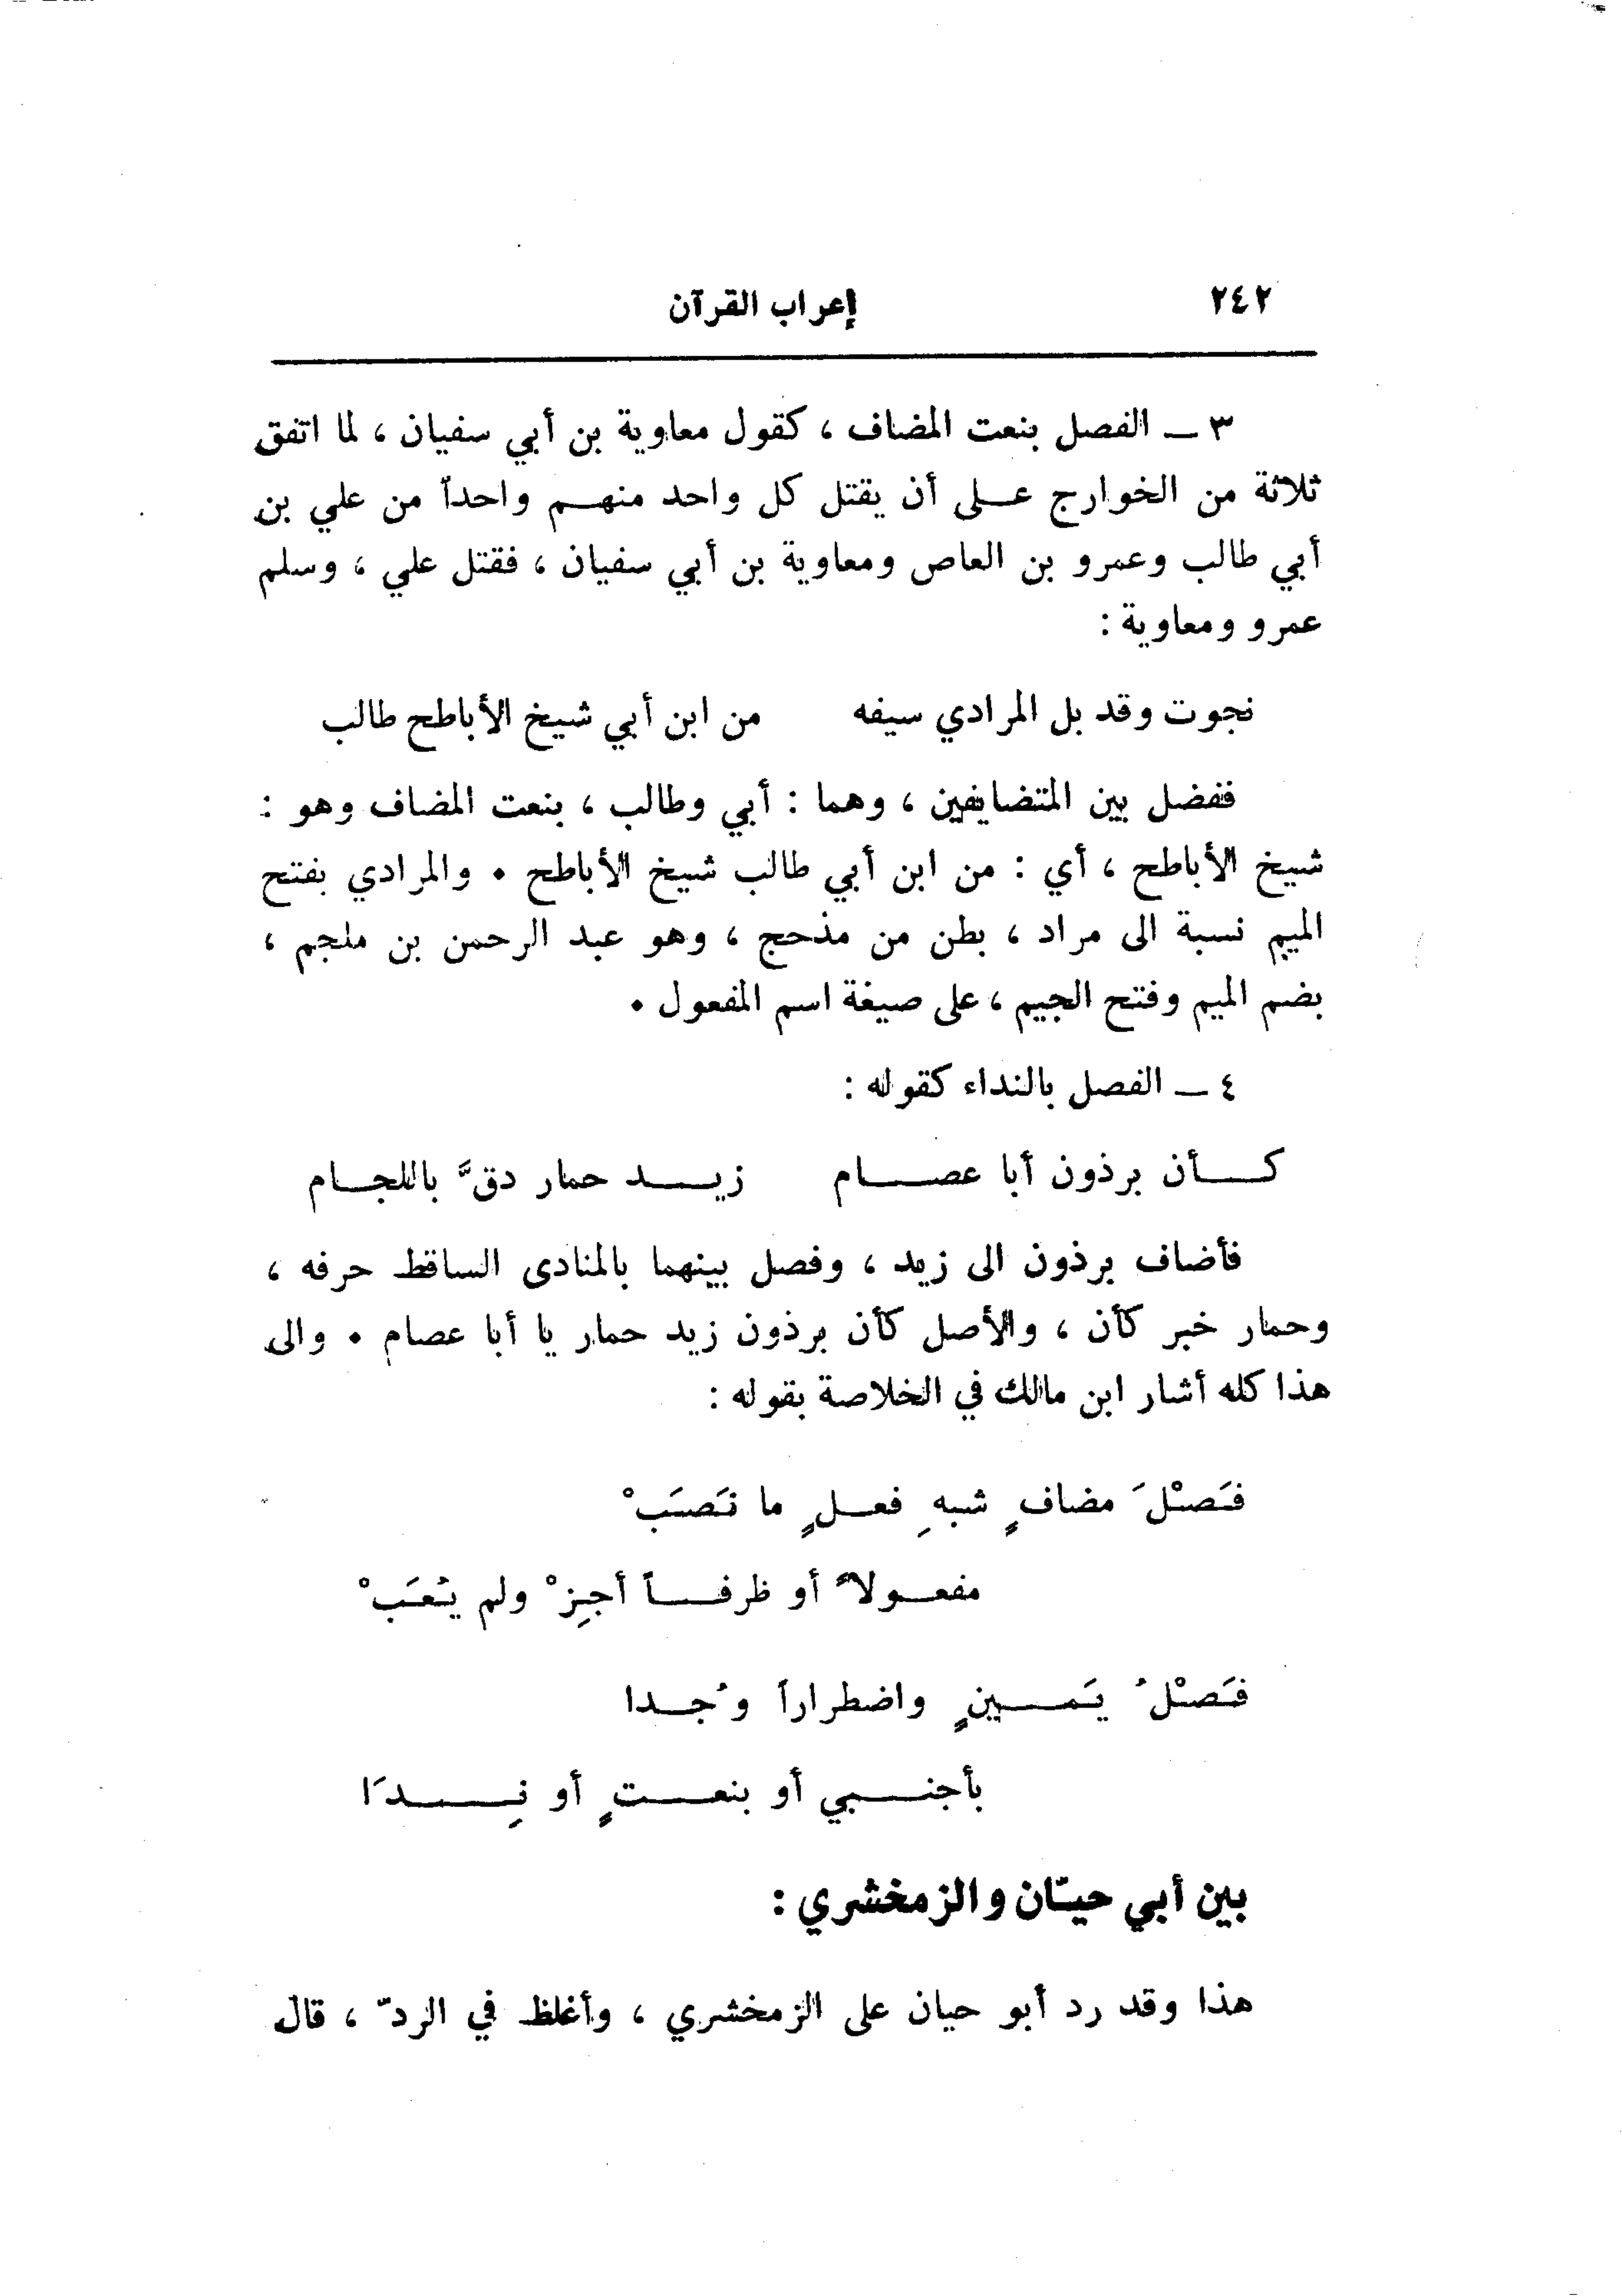 ٢٤٢ إعراب القرآن
٣ ـ الفصل بنعت المضاف ، كقول معاوية بن أبي سفيان ، لما اتفق
ثلاثة من الخوارج عــلى أن يقتل كل واحد منهــم واحداً من علي بن
أبي طالب وعمرو بن العاص ومعاوية بن أبي سفيان ، فقتل علي ، وسلم
عمرو ومعاوية :
نجوت وقد بل المرادي سيفه من ابن أبي شيخ الأباطح طالب
ففضل بين المتضايفين ، وهما : أبي وطالب ، بنعت المضاف وهو :
شيخ الأباطح ، أي : من ابن أبي طالب شيخ الأباطح • والمرادي بفتح
الميم نسبة الى مراد ، بطن من مذحج ، وهو عبد الرحمن بن ملجم ،
بضم الميم وفتح الجيم ، على صيغة اسم المفعول •
٤ ـ الفصل بالنداء كقوله :
كـــأن برذون أبا عصـــام زيـــد حمار دقَّ باللجـــام
فأضاف برذون الى زيد ، وفصل بينهما بالمنادى الساقط حرفه ،
وحمار خبر كأن ، والأصل كأن برذون زيد حمار يا أبا عصام • والى
هذا كله أشار ابن مالك في الخلاصة بقوله :
فَصْلَ مضافٍ شبهِ فعــلٍ ما نَصَبَْ
مفعــولاً أو ظرفـــاً أجِزْ ولم يُعَبْ
فَصْلُ يَمــينٍ واضطراراً وُجــدا
بأجنــبي أو بنعــتٍ أو نِـــدَا
بين أبي حيّان والزمخشري :
هذا وقد رد أبو حيان على الزمخشري ، وأغلظ في الردّ ، قال